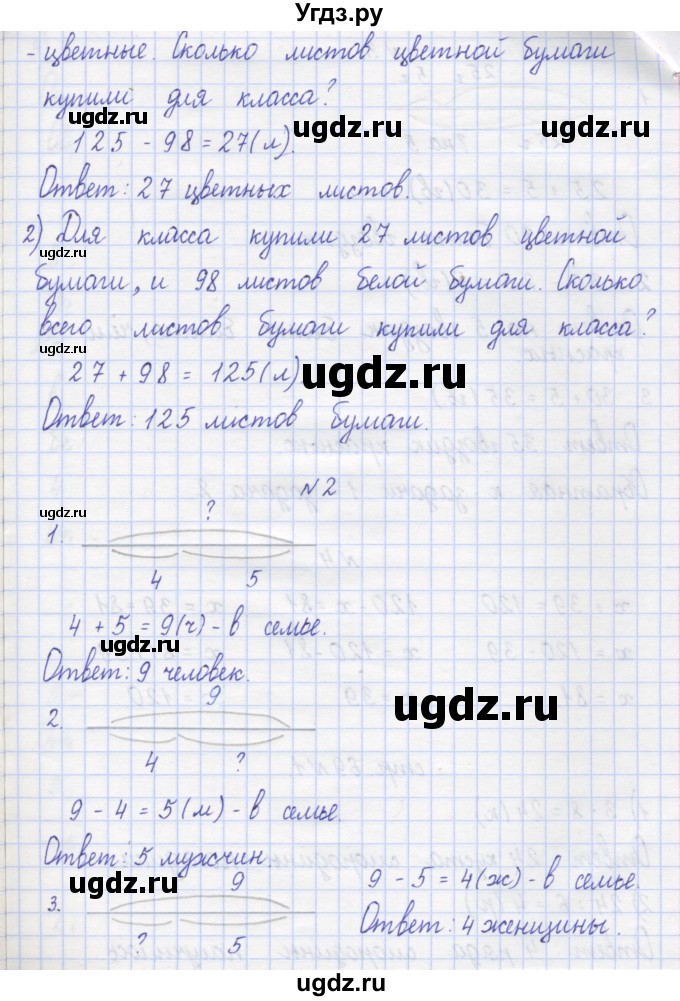 Угдз.ру
- цветные. Сколько листов цветной бумаги
купили для класса?
125 - 98 = 27 (л).
Ответ: 27 цветных листов.
2) Для класса купили 27 листов цветной
бумаги, и 98 листов белой бумаги. Сколько
всего листов бумаги купили для класса?
27 + 98 = 125 (л)
Ответ: 125 листов бумаги.
№2
?
1.
4 5
4 + 5 = 9 (ч) - в семье.
Ответ: 9 человек.
9
2.
4 ?
9 - 4 = 5 (м) - в семье.
Ответ: 5 мужчин.
9
3.
? 5
9 - 5 = 4 (ж) - в семье.
Ответ: 4 женщины.
ugdz.ru
ugdz.ru
ugdz.ru
ugdz.ru
ugdz.ru
ugdz.ru
ugdz.ru
ugdz.ru
ugdz.ru
ugdz.ru
ugdz.ru
ugdz.ru
ugdz.ru
ugdz.ru